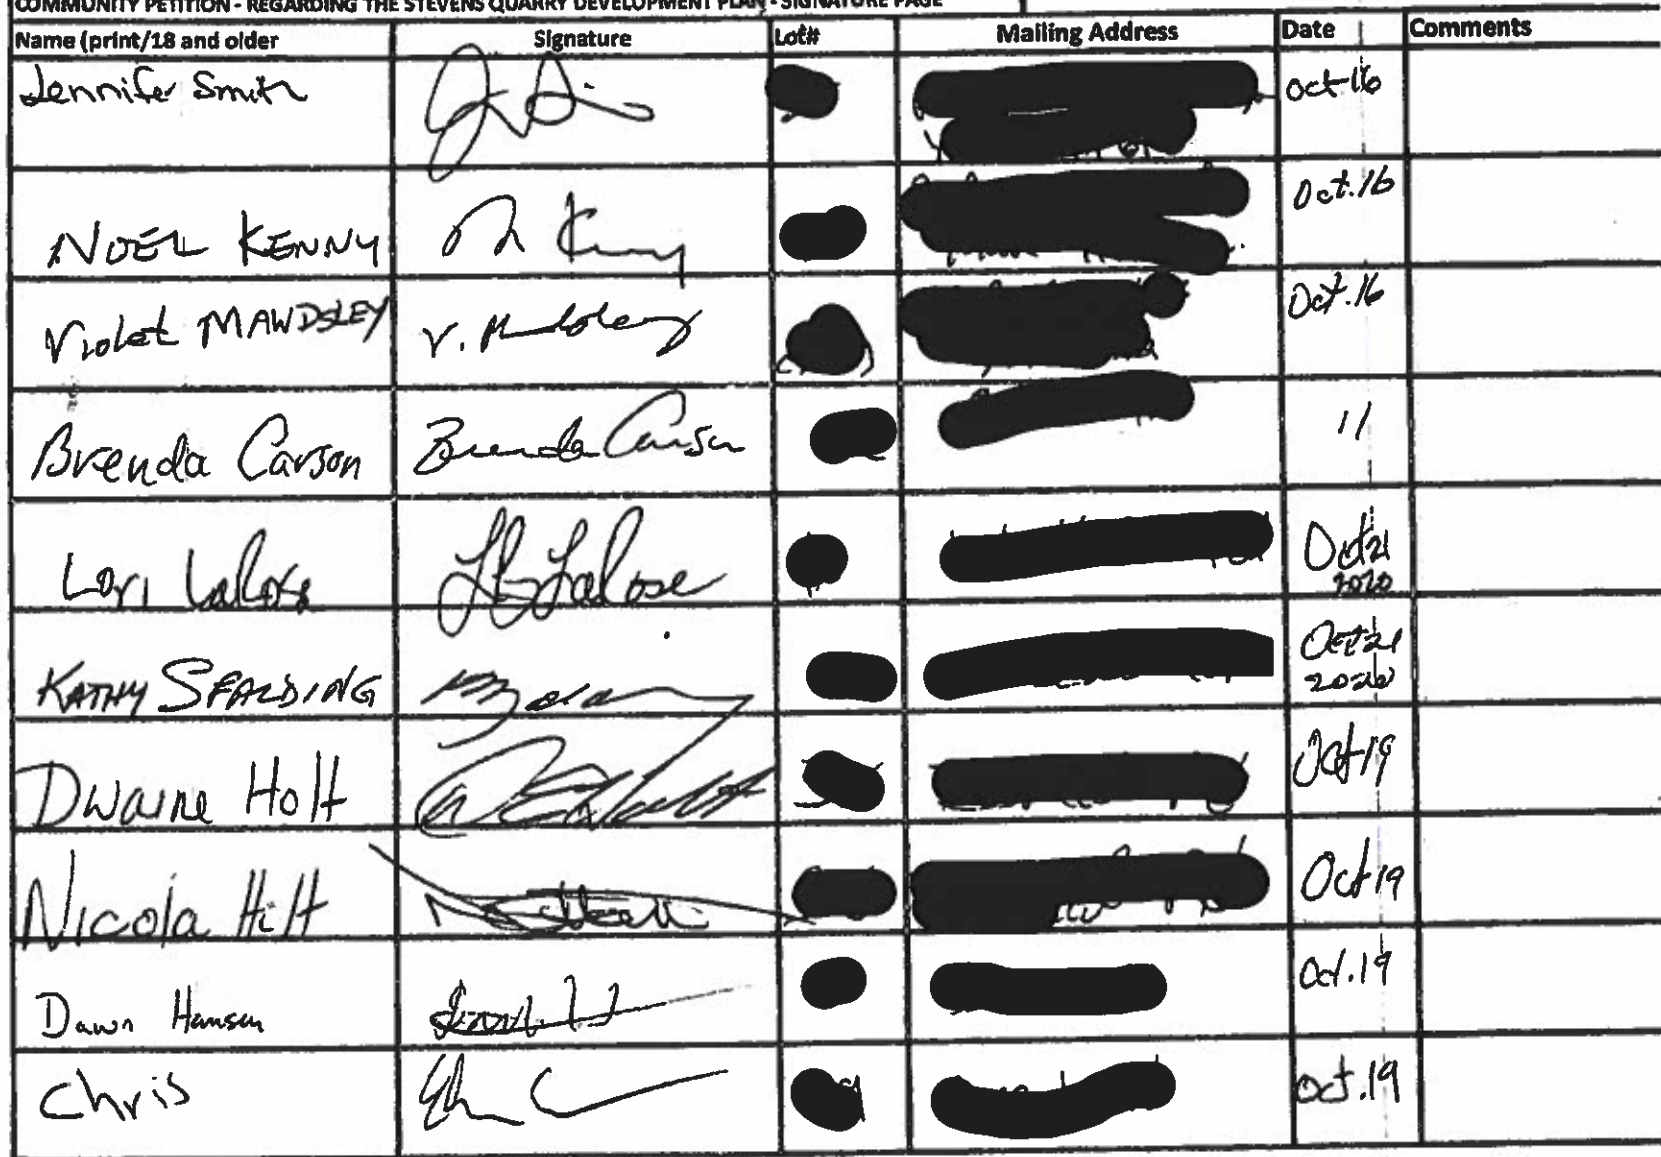 COMMUNITY PETITION - REGARDING THE STEVENS QUARRY DEVELOPMENT PLAN - SIGNATURE PAGE
Name (print/18 and older Signature Lot# Mailing Address Date Comments
Jennifer Smith Oct 16
NOEL KENNY n Kenny Oct. 16
Violet MAWDSLEY V. Mawdsley Oct. 16
Brenda Carson Brenda Carson 11
Lori LaRose LaRose Oct 21
2020
KATHY SPALDING Oct 21
2020
Dwaine Holt Oct 19
Nicola Holt Oct 19
Dawn Hansen Oct. 19
Chris Oct. 19